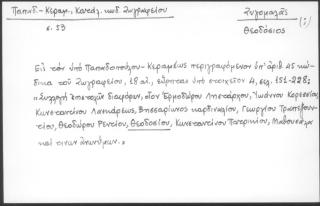 Παπαδ - Κεραμ, Κατάλ. κωδ. Ζωγραφείου
Ζυγομαλᾶς
σ. 59
Θεοδόσιος (;)
Εἰς τὸν ὑπὸ Παπαδοπούλου - Κεραμέως περιγραφόμενον ὑπ' ἀριθ. 25 κώ-
δικα τοῦ Ζωγραφείου, 18 αἰ., εὕρηται ὑπὸ στοιχεῖον 4, σελ. 151-228:
"Συλλογὴ ἐπιστολῶν διαφόρων, οἷον Ἑρμοδώρου Λησtάρχου, Ἰωάννου Καρεσσίου,
Κωνσταντίνου Λασκάρεως, Βησσαρίωνος καρδιναλίου, Γεωργίου Τραπεζουν-
τίου, Θεοδώρου Ρεντίου, Θεοδοσίου, Κωνσταντίνου Πατρικίου, Μαθουσάλα
καὶ τινων ἀνωνύμων."